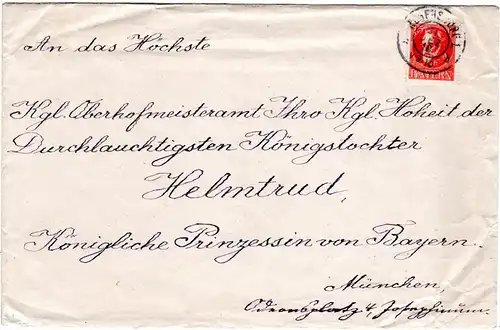 An das Höchste
Kgl. Oberhofmeisteramt Ihro Kgl. Hoheit der
Durchlauchtigsten Königstochter
Helmtrud,
Königliche Prinzessin von Bayern.
München,
Odeonsplatz 4, Josephinum.
BAYERN